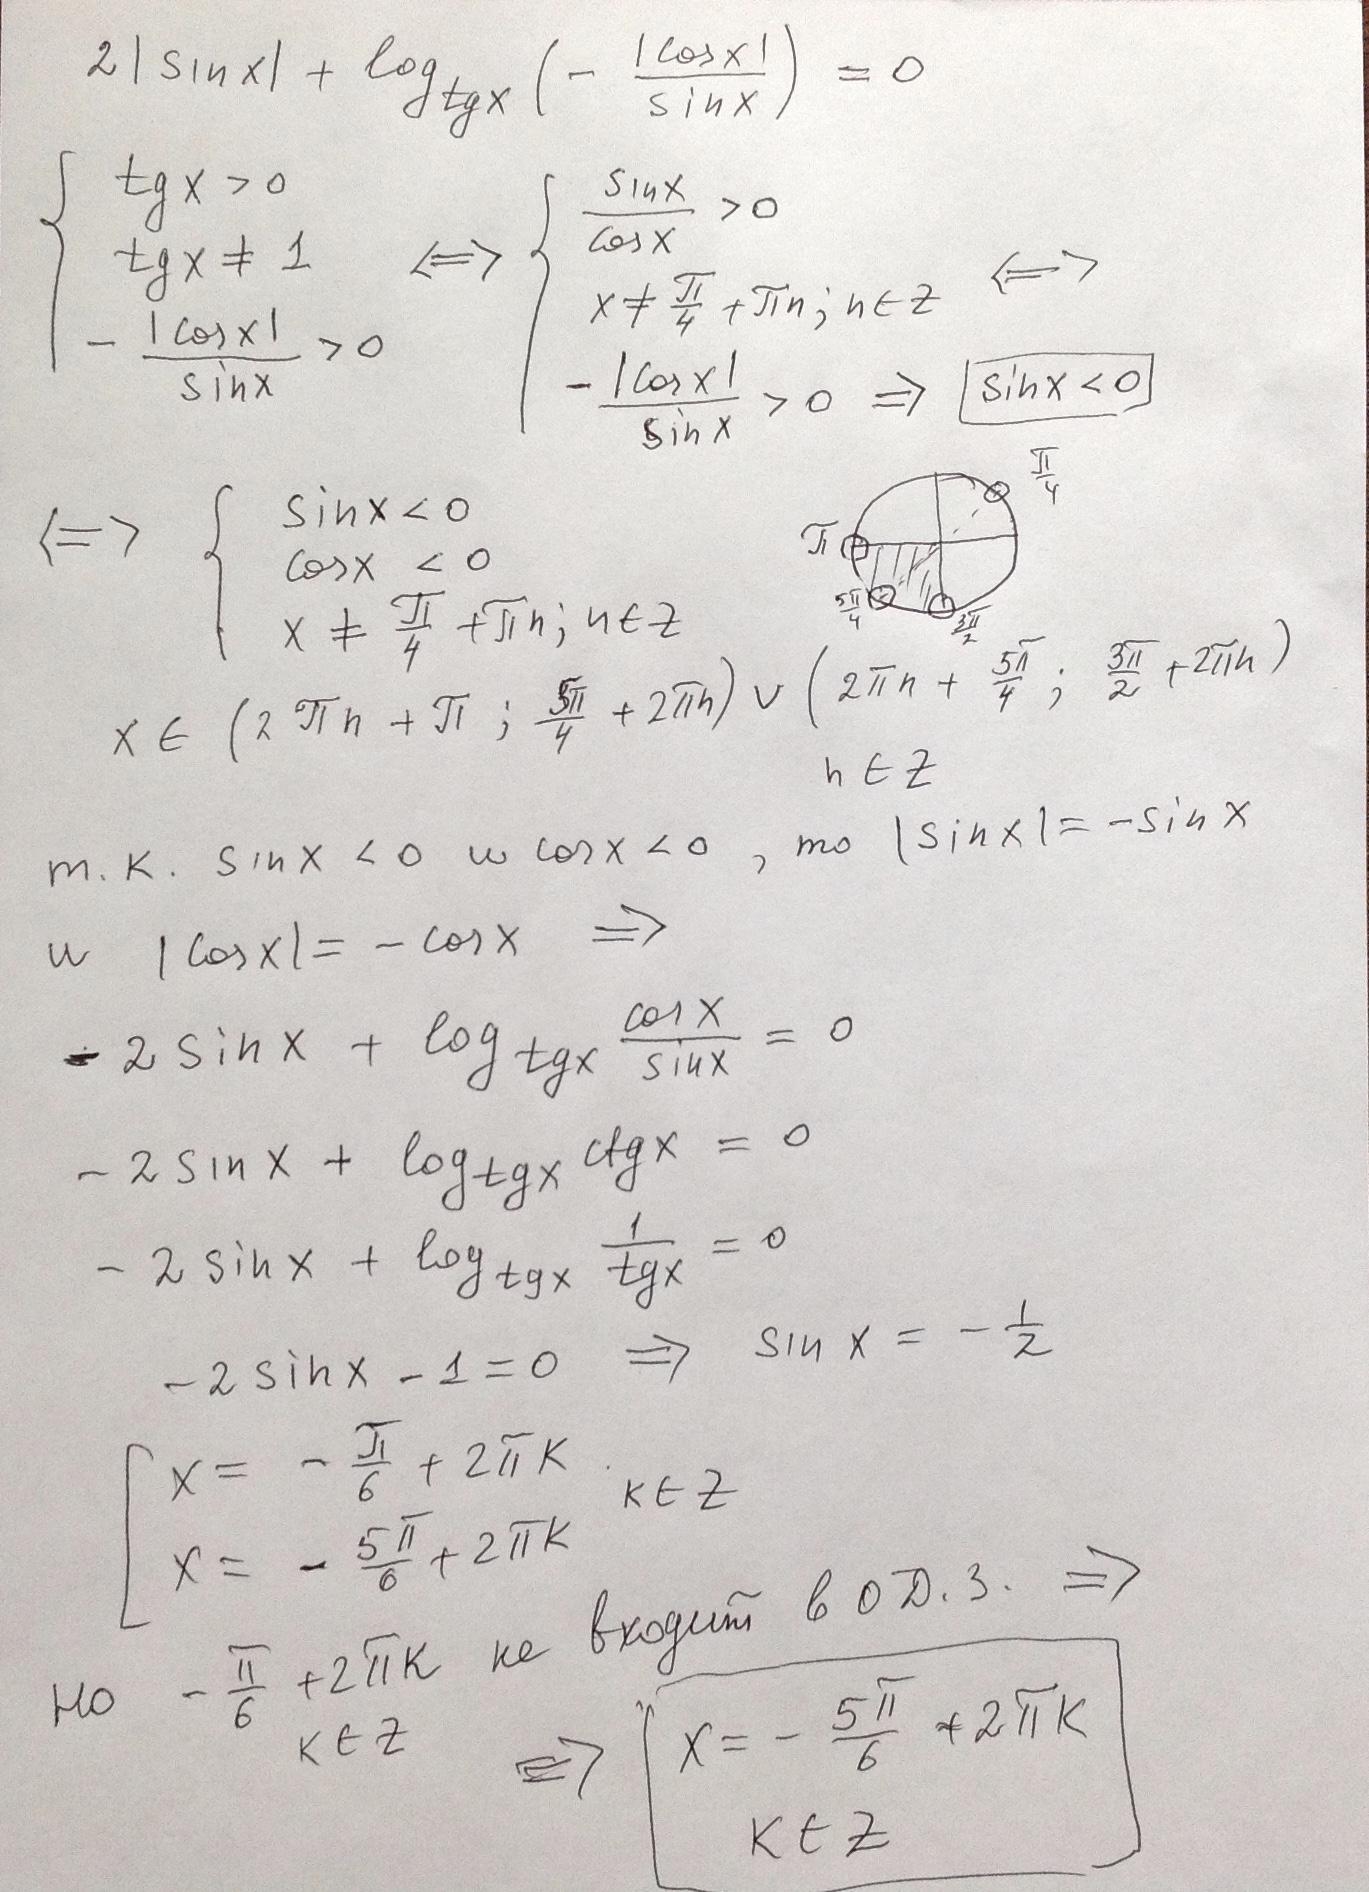 2|sinx| + log_tgx (- |cosx|/sinx) = 0
{ tgx > 0
tgx ≠ 1
- |cosx|/sinx > 0
<=> { sinx/cosx > 0
x ≠ π/4 + πn; n∈Z <=>
- |cosx|/sinx > 0 => sinx < 0
<=> { sinx < 0
cosx < 0
x ≠ π/4 + πn; n∈Z
π/4
π
5π/4
3π/2
x ∈ (2πn + π; 5π/4 + 2πn) ∪ (2πn + 5π/4; 3π/2 + 2πn)
n ∈ Z
т.к. sinx < 0 и cosx < 0, то |sinx| = -sinx
и |cosx| = -cosx =>
-2sinx + log_tgx cosx/sinx = 0
-2sinx + log_tgx ctgx = 0
-2sinx + log_tgx 1/tgx = 0
-2sinx - 1 = 0 => sinx = -1/2
[ x = -π/6 + 2πk
k∈Z
x = -5π/6 + 2πk
Но -π/6 + 2πk не входит в ОД.З. =>
k∈Z
=> x = -5π/6 + 2πk
k∈Z